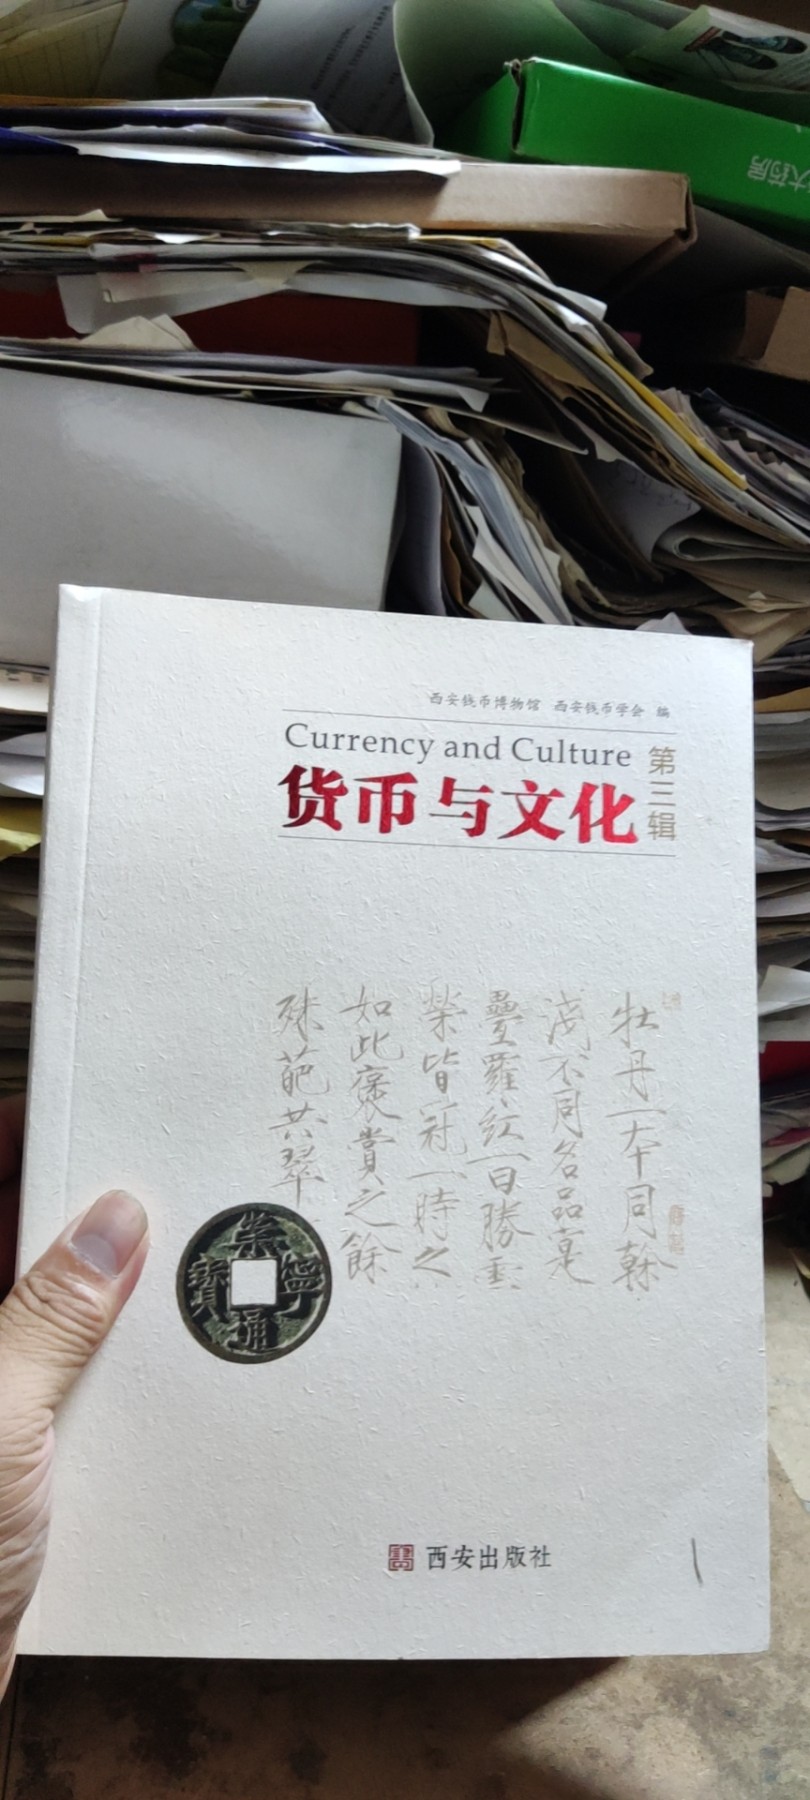 大药房
西安钱币博物馆 西安钱币学会 编
Currency and Culture
货币与文化
第三辑
牡丹一本同幹
二花其紅深
淺不同名品寔
疊羅紅一曰勝雲
榮皆冠一時之
如此褒賞之餘
殊葩共翠
崇寧通寶
西安出版社